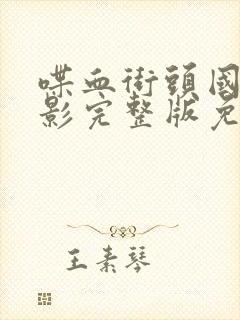 喋血街頭國
影完整版免
王素琴